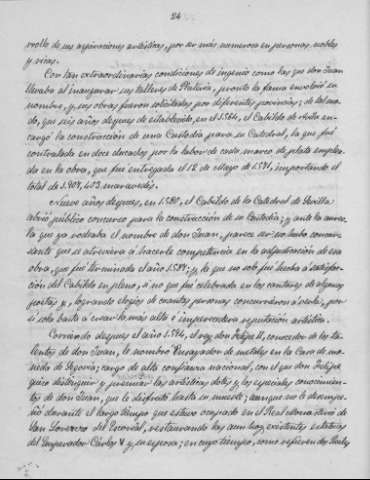 24
rrollo de sus aspiraciones artísticas, por ser más numerosa en personas nobles
y ricas.
Con tan extraordinarias condiciones de ingenio como las que don Juan
llevaba al inaugurar sus talleres de Platería, pronto la fama envolvió su
nombre, y sus obras fueron solicitadas por diferentes provincias; de tal mo-
do, que seis años después de establecido, en el 1.564, el Cabildo de Avila en-
cargó la construcción de una Custodia para su Catedral, la que fué
contratada en doce ducados por la labor de cada marco de plata emplea-
do en la obra, que fué entregada el 12 de Mayo de 1.571, importando el
total de 1.907,403 maravedís.
Nueve años después, en 1.580, el Cabildo de la Catedral de Sevilla
abrió público concurso para la construcción de su Custodia; y ante la aureo-
la que ya rodeaba el nombre de don Juan, parece ser no hubo concur-
sante que se atreviera á hacerle competencia en la adjudicación de esa
obra, que fué terminada el año 1.587; y la que no solo fué hecha á satisfac-
ción del Cabildo en pleno, si no que fué celebrada en los cantares de algunos
poetas y, logrando elogios de cuantas personas concurrieron á verla, por
si sola basta á crear la más alta é imperecedera reputación artística.
Corriendo después el año 1.596, el rey don Felipe II, conocedor de los ta-
lentos de don Juan, le nombró Ensayador de metales en la Casa de mo-
neda de Segovia; cargo de alta confianza nacional, con el que don Felipe
quiso distinguir y premiar las artísticas dotes y los especiales conocimien-
tos de don Juan, que le disfrutó hasta su muerte; aunque no le desempe-
ñó durante el largo tiempo que estuvo ocupado en el Real Monasterio de
San Lorenzo del Escorial, restaurando las aun hoy existentes estatuas
del Emperador Cárlos V y su esposa; en cuyo tiempo, como refiriendo